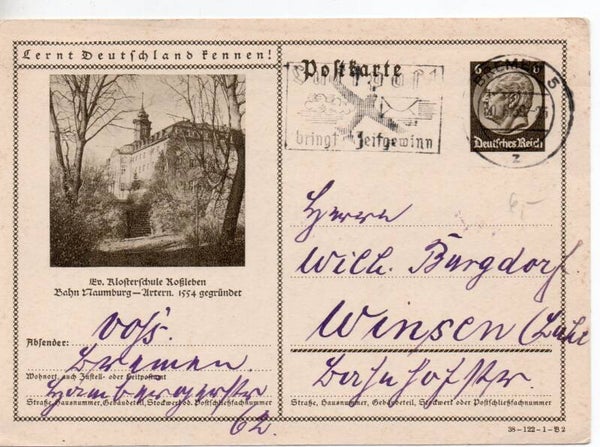 Lernt Deutschland kennen!
Ev. Klosterschule Roßleben
Bahn Naumburg—Artern. 1554 gegründet
Absender: Voss.
Bremen.
Wohnort, auch Zustell- oder Leitpostamt
Hambergerstr
62.
Straße, Hausnummer, Gebäudeteil, Stockwerk od. Postschließfachnummer
Postkarte
bringt Zeitgewinn
BREMEN 5
z
6
6
Deutsches Reich
6,-
Herrn
Willi. Burgdorf
Winsen (Luhe
Bahnhofstr.
Straße, Hausnummer, Gebäudeteil, Stockwerk oder Postschließfachnummer
38-122-1-B2